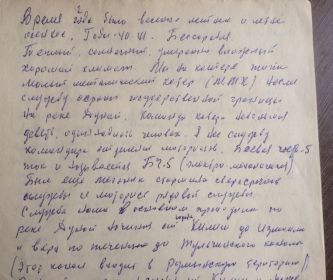 Время года было весенне летнее и летне
осенное. Годы 40-41. Бессарабия
Теплый, солнечный, умеренно влажный
хороший климат. Мы на катере
Малый металический катер (ММК) несли
службу охраны государственной границы
на реке Дунай. Команда катера небольшая
девять, одиннадцать человек. Я нес службу
командира отделения мотористов. Боевая часть-5
так и называется БЧ.5 (электро-механическая)
Был ещё механик старшина сверхсрочной
службы и моторист рядовой службы
Служба наша в основном проходила по
реке Дунай начиная от города Килия до Измаила
и вверх по течению до Тульчинского канала
(Этот канал входит в Румынскую территорию)